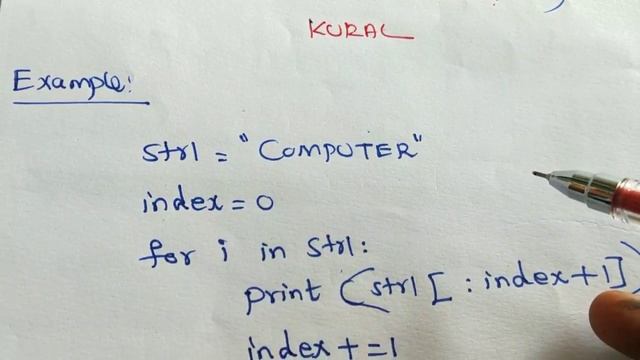 KURAL
Example:
str1 = "COMPUTER"
index = 0
for i in str1:
print (str1[ : index+1])
index + =1